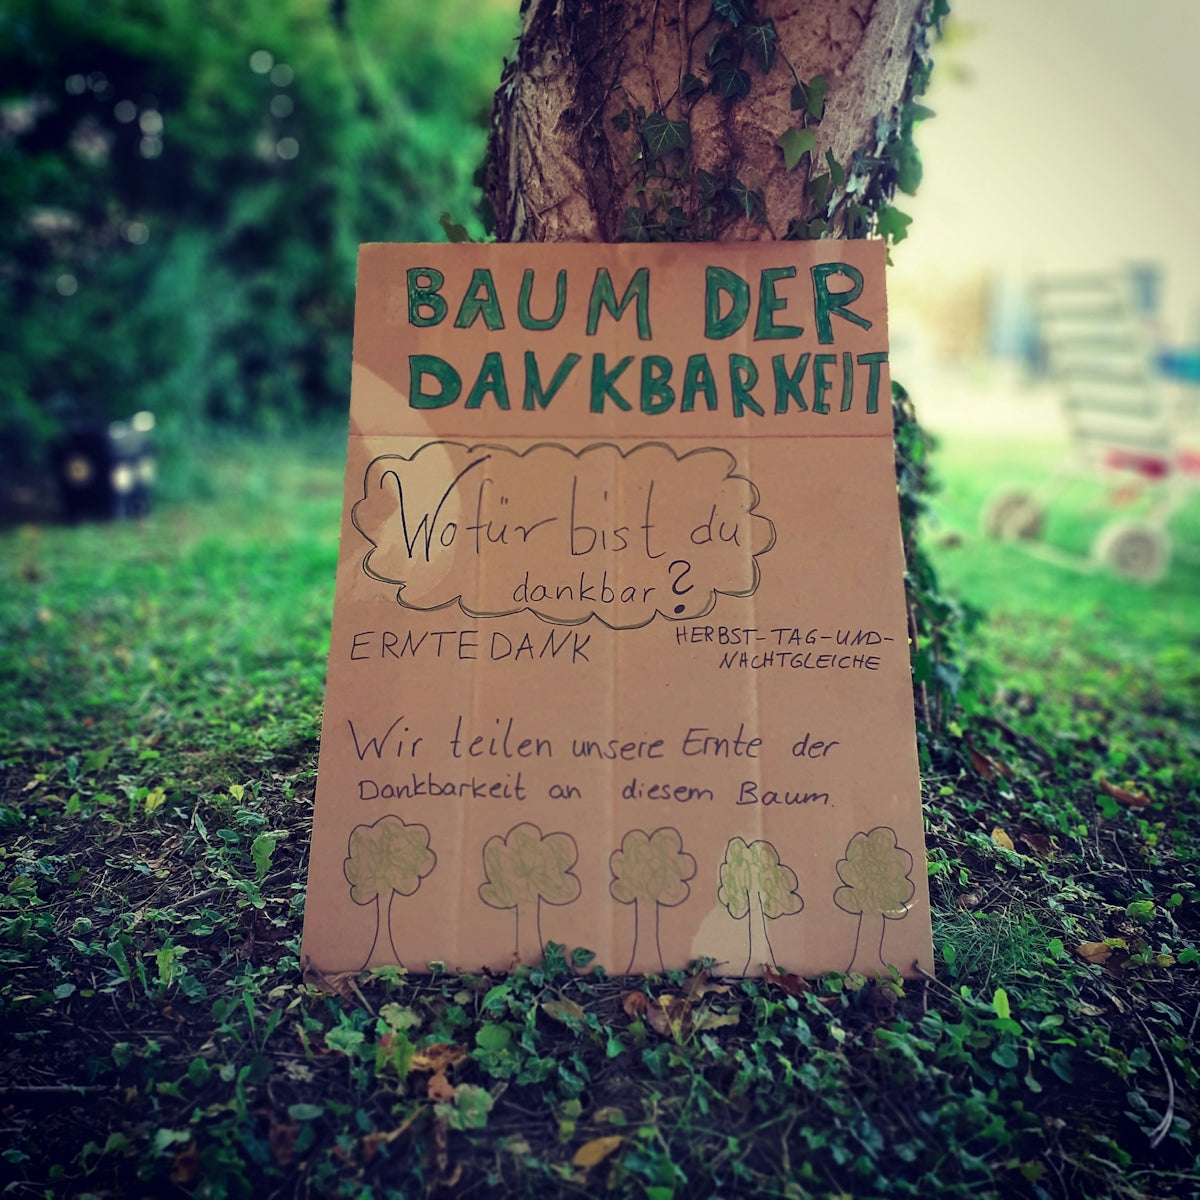 BAUM DER
DANKBARKEIT
Wofür bist du
dankbar?
ERNTEDANK
HERBST-TAG-UND-
NACHTGLEICHE
Wir teilen unsere Ernte der
Dankbarkeit an diesem Baum.